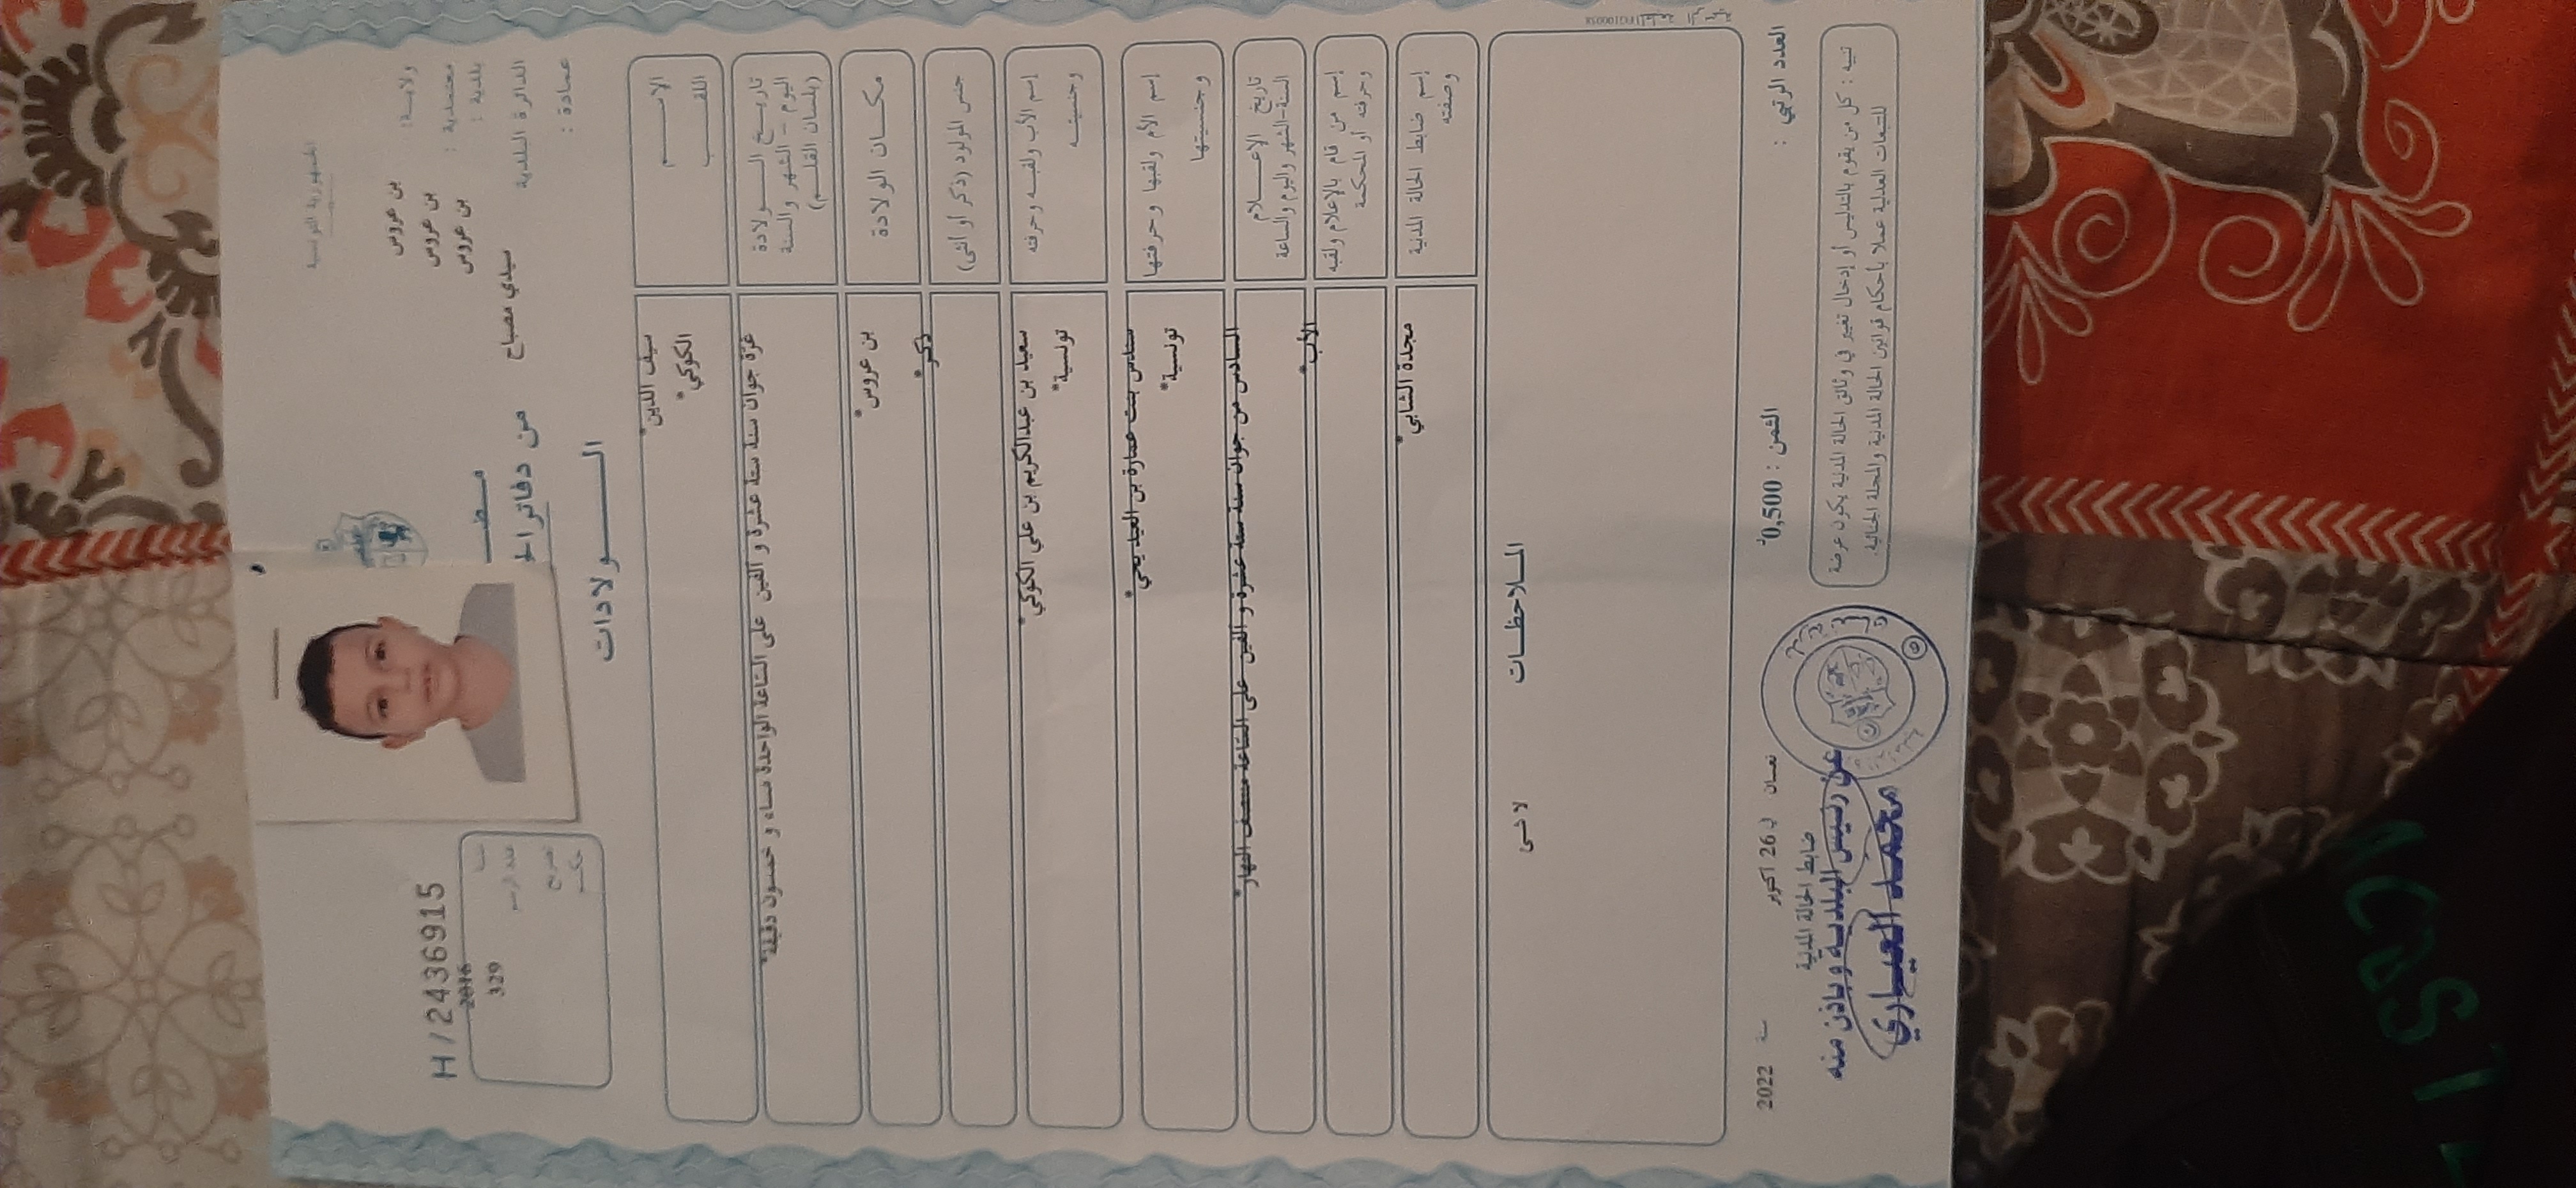 الجمهورية التونسية
ولاية: بن عروس
معتمدية : بن عروس
بلدية : بن عروس
الدائرة البلدية سيدي مصباح
عمادة :
H/2436915
سنة 2016
عدد الرسم 329
تصريح
حكم
من دفاتر
الـــولادات
الاســم سيف الدين*
اللقــب الكوكي*
تاريــخ الــولادة
اليوم - الشهر والسنة
(بلسان القلــم)
غرّة جوان سنة ستة عشرة و الفين على الساعة الواحدة مساء و خمسون دقيقة*
مكــان الولادة بن عروس*
جنس المولود (ذكر أو أنثى) ذكر*
إسم الأب ولقبه وحرفته سعيد بن عبدالكريم بن علي الكوكي*
وجنسيتــه تونسية*
إسم الأم ولقبها وحرفتها سندس بنت عمارة بن العيد يحي*
وجنسيتهــا تونسية*
تاريخ الإعــلام
السنة-الشهر واليوم والساعة
السادس من جوان سنة ستة عشرة و الفين على الساعة منتصف النهار*
إسم من قام بالإعلام ولقبه
وحرفته أو المحكمة
الأب*
إسم ضابط الحالة المدنية مجدة الشابي*
وصفته
الملاحظــات
لا شئ
العدد الرتبي :
الثمن : 0,500د
نعسان في 26 اكتوبر سنة 2022
ضابط الحالة المدنية
عن رئيس البلدية و بإذن منه
محمد العياري
تنبيه : كل من يقوم بالتدليس أو إدخال تغيير في وثائق الحالة المدنية يكون عرضة
للتتبعات العدلية عملا بأحكام قوانين الحالة المدنية والمجلة الجنائية.